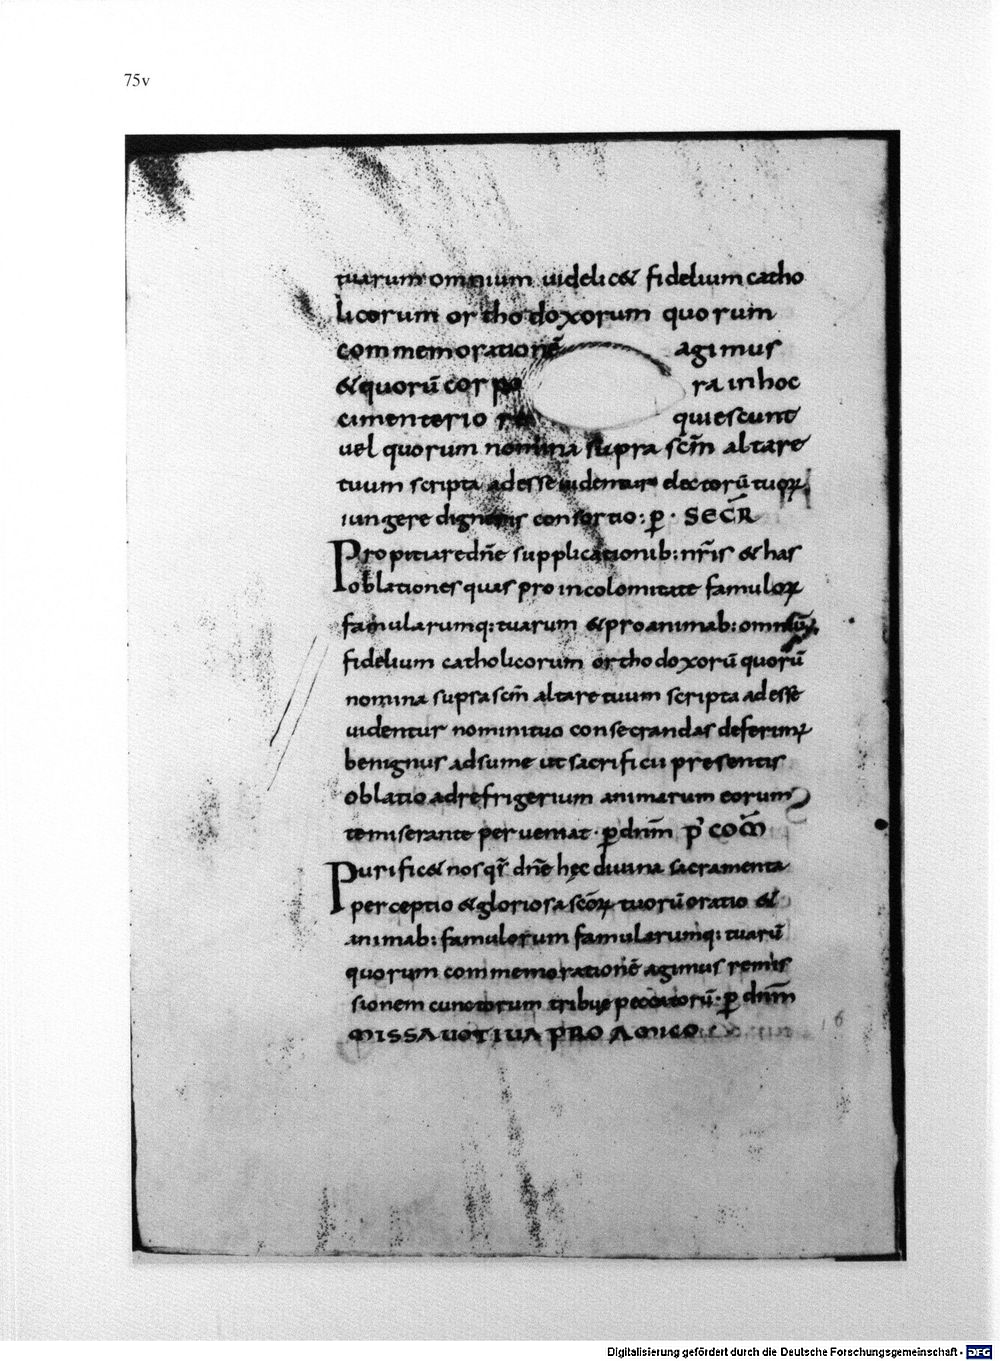 75v
tuarum omnium uidelic& fidelium catho
licorum orthodoxorum quorum
commemorationē agimus
& quorū corpo ra in hoc
cimenterio re quiescunt
uel quorum nomina supra scm̄ altare
tuum scripta adesse uidentur electorū tuoꝝ
iungere digneris consortio: ꝑ · SECR̄
Propitiare dn̄e supplicationib: nr̄is & has
oblationes quas pro incolomitate famuloꝝ
famularumq: tuarum & pro animab: omniū
fidelium catholicorum orthodoxorū quorū
nomina supra scm̄ altare tuum scripta adesse
uidentur nomini tuo consecrandas deferimꝰ
benignus adsume ut sacrificii presentis
oblatio ad refrigerium animarum eorum
te miserante perueniat · ꝑ dnm̄ P̄ COM̄
Purific& nos qs̄ dn̄e hęc diuina sacramenta
perceptio & gloriosa scōꝝ tuorū oratio &
animab: famulorum famularumq: tuarū
quorum commemorationē agimus remis
sionem cunctorum tribue peccatorū · ꝑ dnm̄
MISSA UOTIUA PRO AMICO
Digitalisierung gefördert durch die Deutsche Forschungsgemeinschaft - DFG